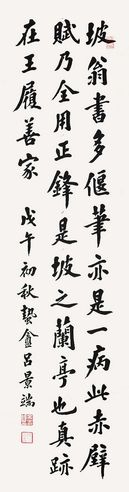 坡翁書多偃筆亦是一病此赤壁
賦乃全用正鋒是坡之蘭亭也真跡
在王履善家
戊午初秋蟄盦呂景端